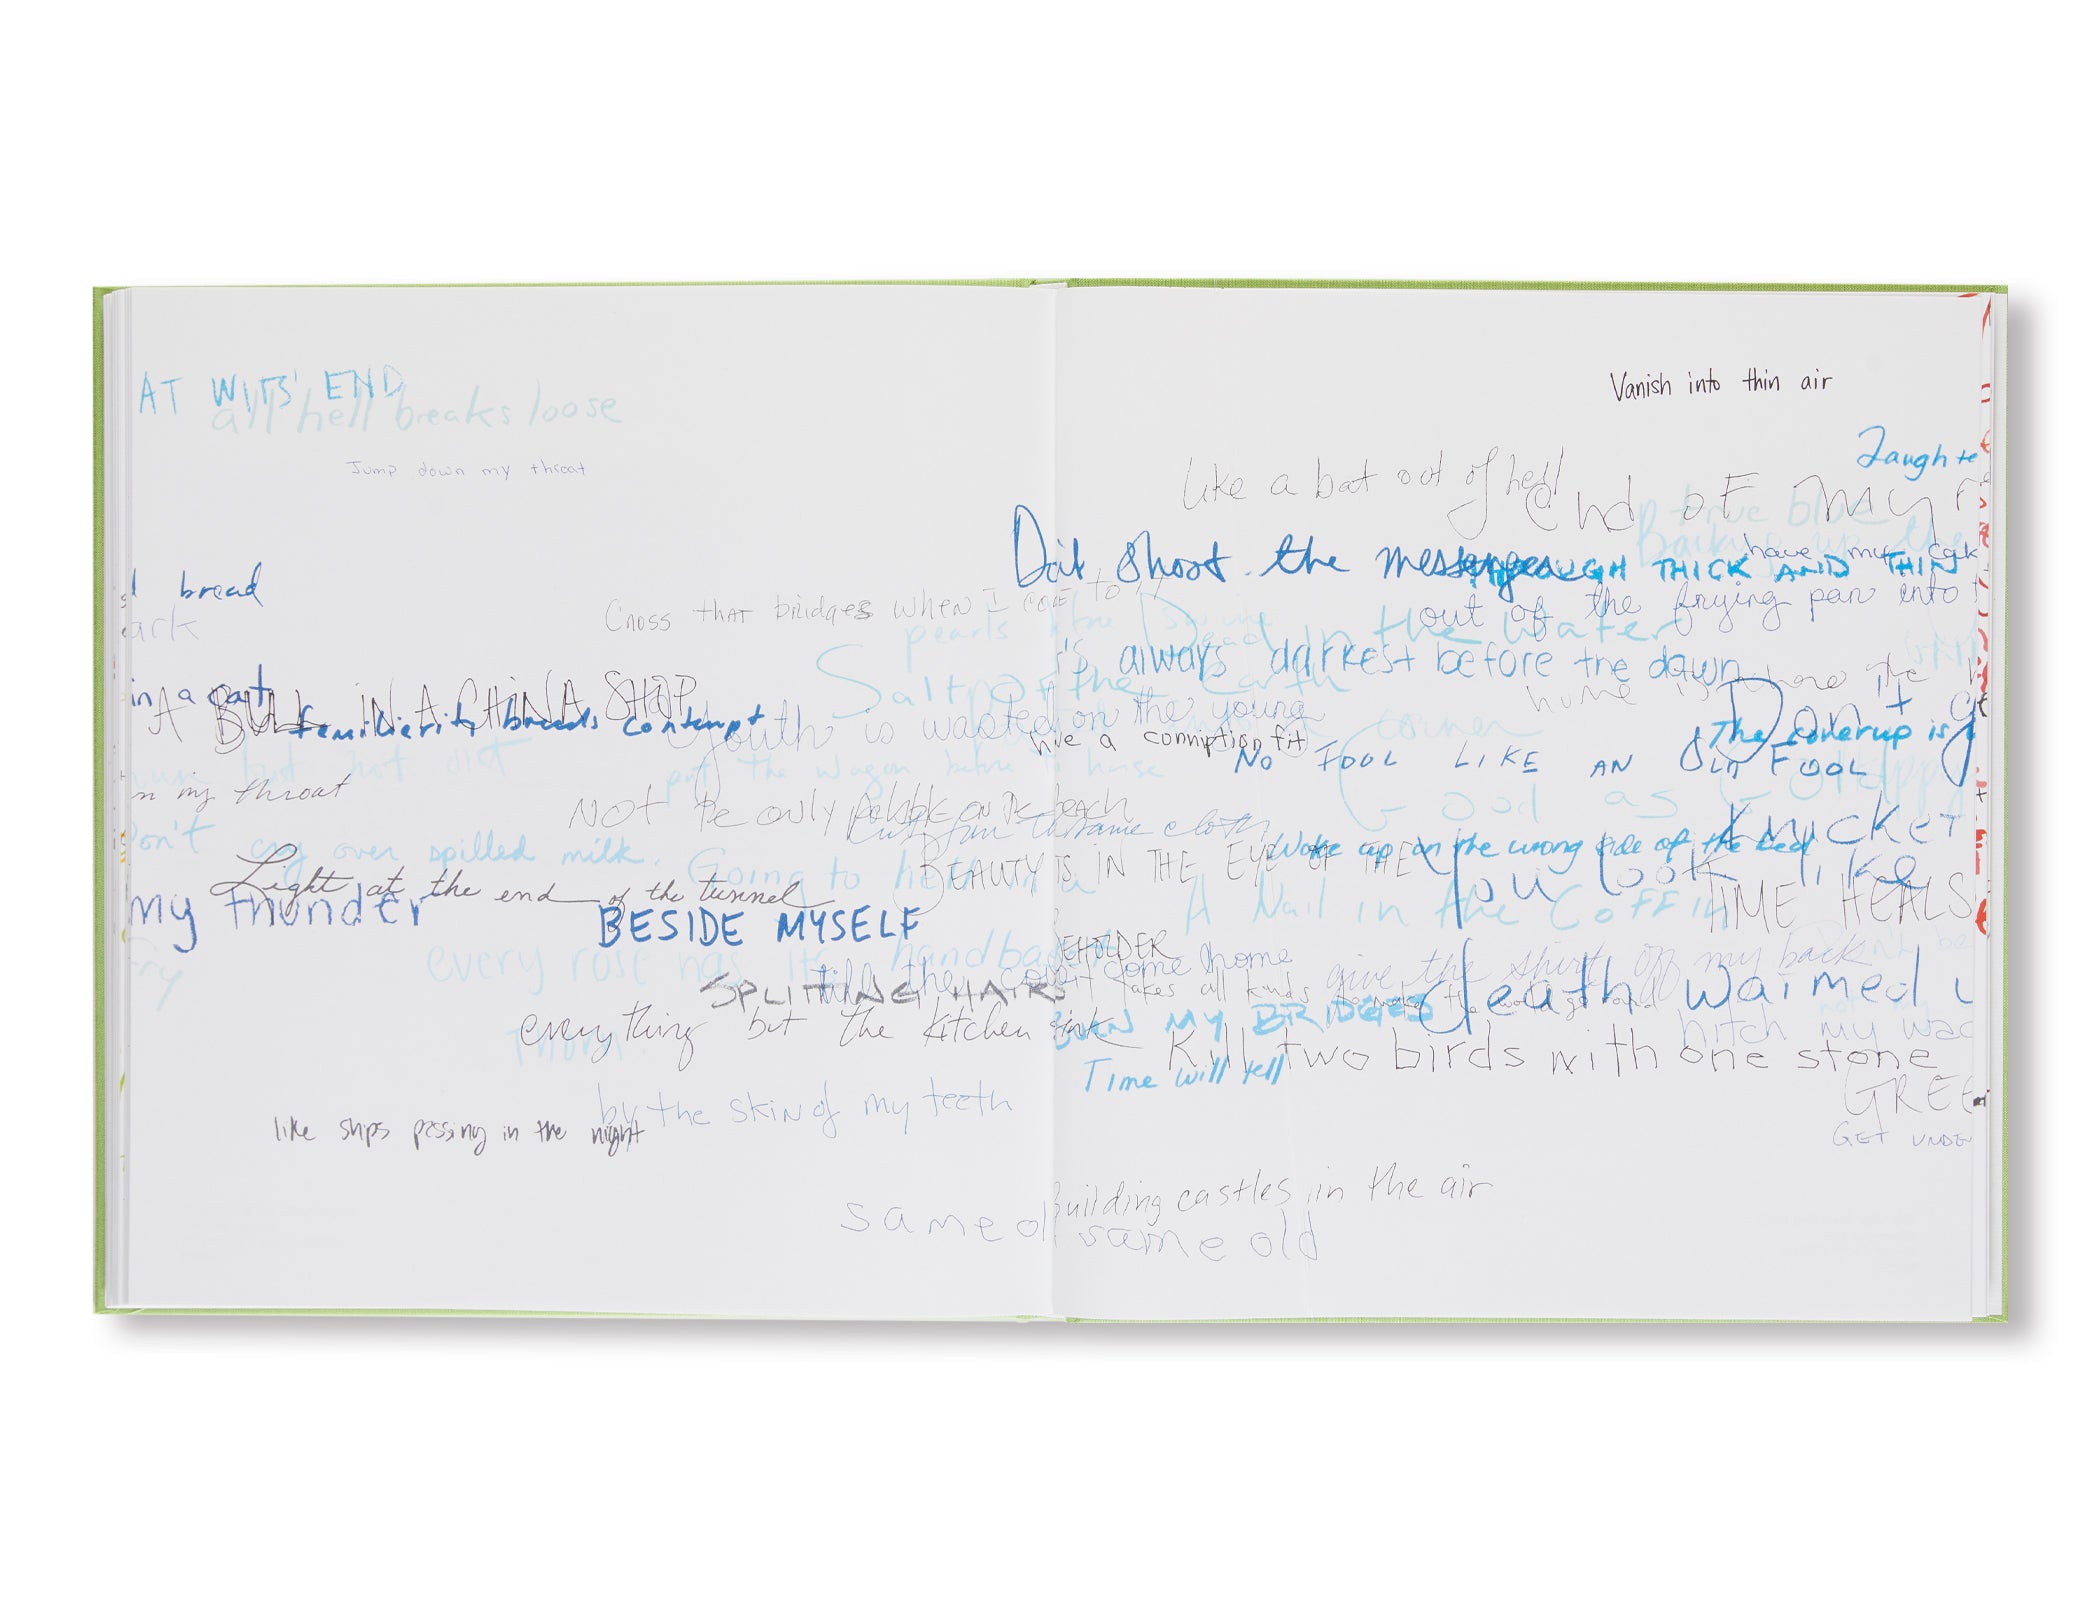 AT WITS' END
all hell breaks loose
Jump down my throat
Vanish into thin air
Laughte
like a bat out of hell
end of my r
true blue
Backing up the
Don't shoot the messenger
THROUGH THICK AND THIN
have my cak
bread
ark
Cross that bridges when I come to it
out of the frying pan into
pearls before swine
Dead in the water
's always darkest before the dawn
Salt of the Earth
home is where the h
in a cart
A BULL IN A CHINA SHOP
familierity breeds contempt
Youth is wasted on the young
have a conniption fit
corner
Don't g
The coverup is
put the wagon before the horse
NO FOOL LIKE AN OLD FOOL
but not dist
n my throat
Good as G
Happy
Not the only pebble on the beach
Cut from the same cloth
Knicket
Don't cry over spilled milk.
Going to hell in a
handbasket
BEAUTY IS IN THE EYE OF THE
BEHOLDER
Woke up on the wrong side of the bed
You look like
death waimed u
Light at the end of the tunnel
my thunder
BESIDE MYSELF
A Nail in the Coffin
TIME HEALS
every rose has its
Thorn
Fry
till the cows come home
give the shirt off my back
SPLITTING HAIRS
takes all kinds to make the world go round
everything but the kitchen sink
BURN MY BRIDGES
hitch my wag
Kill two birds with one stone
Time will tell
GREE
by the skin of my teeth
like ships passing in the night
GET UNDE
Building castles in the air
same old same old